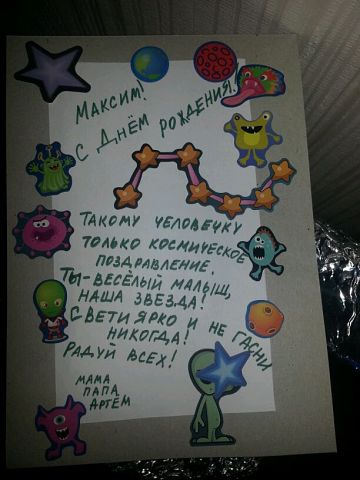 МАКСИМ!
С ДНЁМ РОЖДЕНИЯ!
ТАКОМУ ЧЕЛОВЕЧКУ
ТОЛЬКО КОСМИЧЕСКОЕ
ПОЗДРАВЛЕНИЕ.
ТЫ-ВЕСЁЛЫЙ МАЛЫШ,
НАША ЗВЕЗДА!
СВЕТИ ЯРКО И НЕ ГАСНИ
НИКОГДА!
РАДУЙ ВСЕХ!
МАМА
ПАПА
АРТЁМ